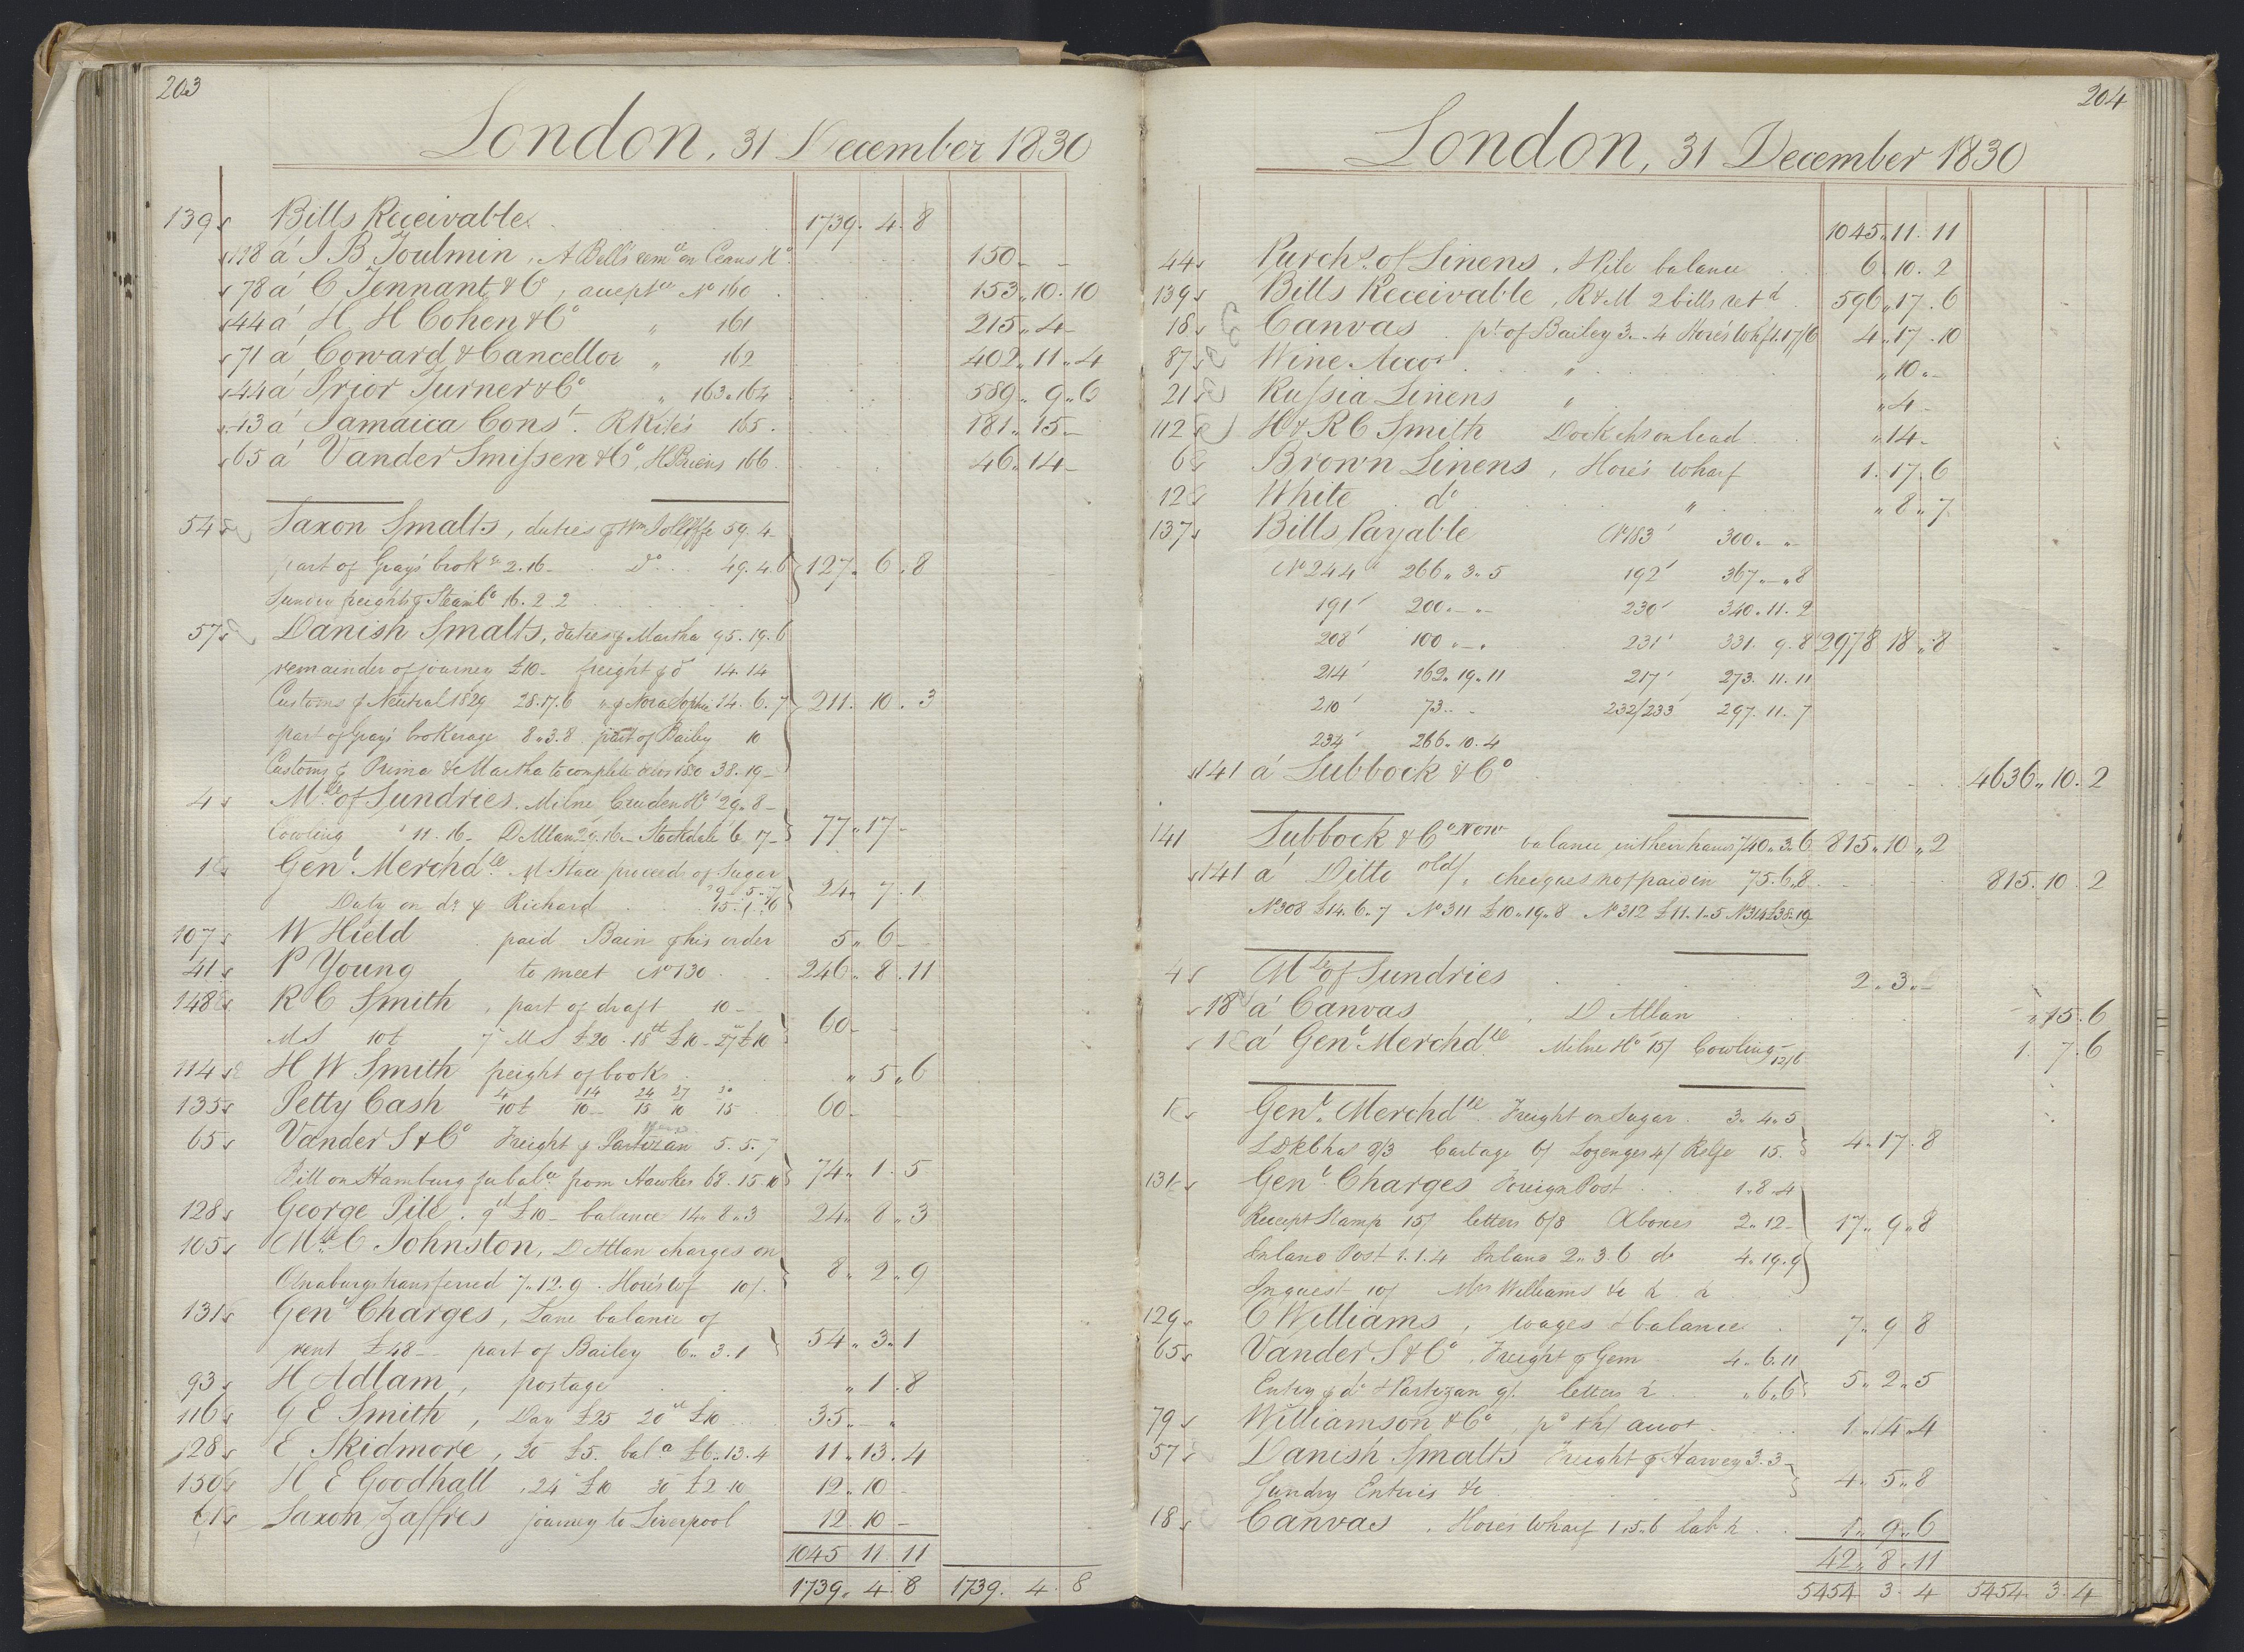 203
London, 31 December 1830
139 Bills Receivable 1739. 4. 8
118 á J B Toulmin, A Bell's rem ce on 150 - -
78 á C Tennant & Co, accept ce No 160 153. 10. 10
44 á H H Cohen & Co " 161 215. 4 -
71 á Coward & Cancellor " 162 402. 11. 4
44 á Prior Turner & Co " 163. 164 589. 9. 6
43 á Jamaica Const. R Kite's 165. 181. 15 -
65 á Vander Smissen & Co, H Briens 166. 46. 14 -
54 Saxon Smalts, duties Wm Jolliffe 59. 4 -
part of Gray's brok ge 2. 16 - Do 49. 4. 6 127. 6. 8
freights 16. 2. 2
57 Danish Smalts, duties Martha 95. 19. 6
remainder of journey £10 - freight do 14. 14
Customs Neutral 1829 28. 17. 6 " Nora Sophie 14. 6. 7 211. 10. 3
part of Gray's brokerage 8. 3. 8 part of Bailey 10
Customs Prima & Martha to complete 38. 19 -
4 Mdle of Sundries. Milne, Cruden & Co 29. 8 -
Cowling " 11. 16 - D Allan 29. 16 - Stockdale 6. 17 - 77. 17 -
1 Genl Merchdle M Stace proceeds of Sugar 9. 5. 7
Duty on do Richard 15. 1. 6 24. 7. 1
107 W Hield paid Bain his order 5. 6 -
41 P Young to meet No 130 246. 8. 11
148 R C Smith, part of draft 10 -
MS 10t 7 MS £20 . 18th £10 - 27 £10 60 - -
114 H W Smith freight of books " 5. 6
135 Petty Cash 4/10t 14/10 - 24/15 27/10 30/15 60 - -
65 Vander S & Co Freight Partizan 5. 5. 7
Bill on Hamburg balce from Hawkes 68. 15. 10 74. 1. 5
128 George Pile. 9th £10 - balance 14. 8. 3 24. 8. 3
105 Mdle C Johnston, D Allan charges on
Osnaburgs transferred 7. 12. 9. Hore's wf 10/. 8. 2. 9
131 Genl Charges, Lane balance of
rent £48 - part of Bailey 6. 3. 1 54. 3. 1
93 H Adlam, postage " 1. 8
116 G E Smith, Day £25 20th £10 35. - "
128 E Skidmore, 20 £5. bal a £6. 13. 4 11. 13. 4
150 H E Goodhall, 24 £10 30 £2. 10 12. 10 -
61 Saxon Zaffres journey to Liverpool 12. 10 -
1045. 11. 11
1739. 4. 8 1739. 4. 8
204
London, 31 December 1830
1045. 11. 11
44 Purchs of Linens, Pile balance 6. 10. 2
139 Bills Receivable, R & M 2 bills retd 596. 17. 6
18 Canvas. pt of Bailey 3. - . 4 Hore's Whf 1. 17/6 4. 17. 10
87 Wine Accot " " 10. -
21 Russia Linens " " 4 -
112 H & R C Smith Dock chs on lead " 14 -
6 Brown Linens, Hore's wharf 1. 17. 6
12 White do " " 8. 7
137 Bills Payable No 183 300. - "
No 244 266. 3. 5 192 367. - . 8
191 200. - - 230 340. 11. 2
208 100. - . 231 331. 9. 8 2978. 18. 8
214 162. 19. 11 217 273. 11. 11
210 73. - - 232/233 297. 11. 7
234 266. 10. 4
141 á Lubbock & Co 4636. 10. 2
141 Lubbock & Co New balance in their hands 740. 3. 6 815. 10. 2
141 á Ditto old/, cheques not paid in 75. 6. 8 815. 10. 2
No 308 £14. 6. 7 No 311 £10. 19. 8 No 312 £11. 1. 5 No 314 £38. 19
4 Mdle of Sundries 2. 3. -
18 á Canvas, D Allan " 15. 6
1 á Genl Merchdle Milne & Co 15/ Cowling 12/6 1. 7. 6
1 Genl. Merchdle. Freight on Sugar. 3. 4. 5
LDK Chas 8/3 Cartage 6/ Lozenges 4/ Relfe 15. 4. 17. 8
131 Genl. Charges Foreign Post 1. 8. 4
Receipt Stamp 15/ letters 6/8 Aboxes 2. 12 - 17. 9. 8
Inland Post 1. 1. 4 Inland 2. 3. 6 do 4. 19. 9
Inquest 10/ Mrs Williams &c
129 C Williams, wages & balance 7. 9. 8
65 Vander S & Co, Freight Gem 4. 6. 11
Entry do & Partizan 9/. letters " 6. 6 5. 2. 5
79 Williamson & Co, pd accot 1. 14. 4
57 Danish Smalts Freight Harvey 3. 3 -
Sundry Entries &c 4. 5. 8
18 Canvas, Hore's Wharf 1. 5. 6 1. 9. 6
42. 8. 11
5454. 3. 4 5454. 3. 4